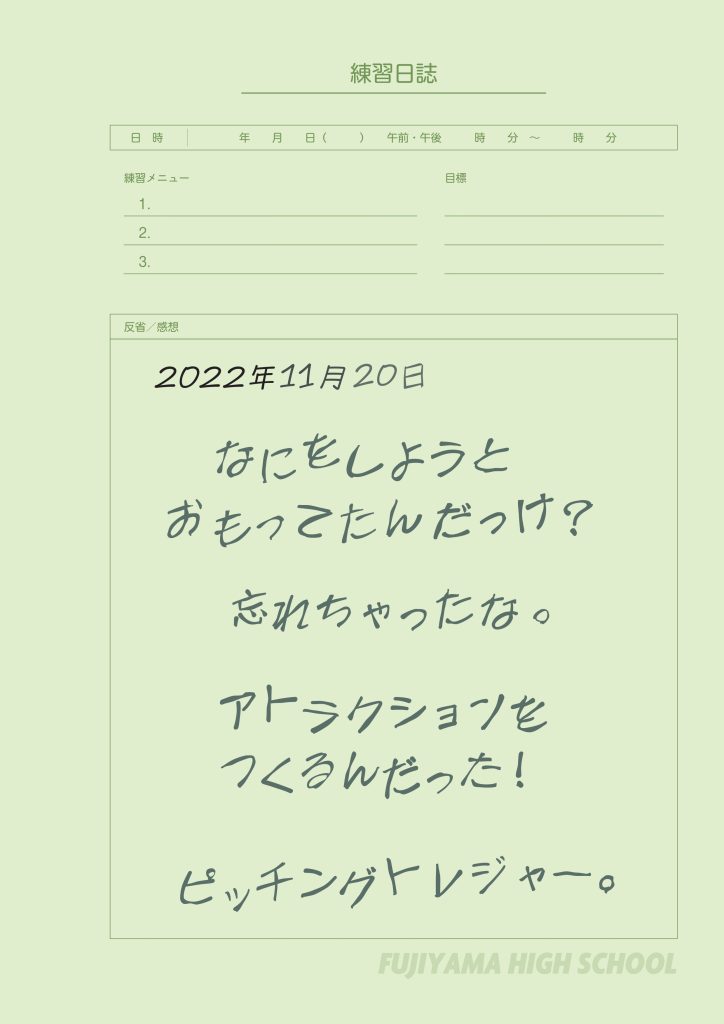 練習日誌
日 時 年 月 日 ( ) 午前・午後 時 分 ～ 時 分
練習メニュー 目標
1.
2.
3.
反省／感想
2022年11月20日
なにをしようと
おもってたんだっけ？
忘れちゃったな。
アトラクションを
つくるんだった！
ピッチングトレジャー。
FUJIYAMA HIGH SCHOOL